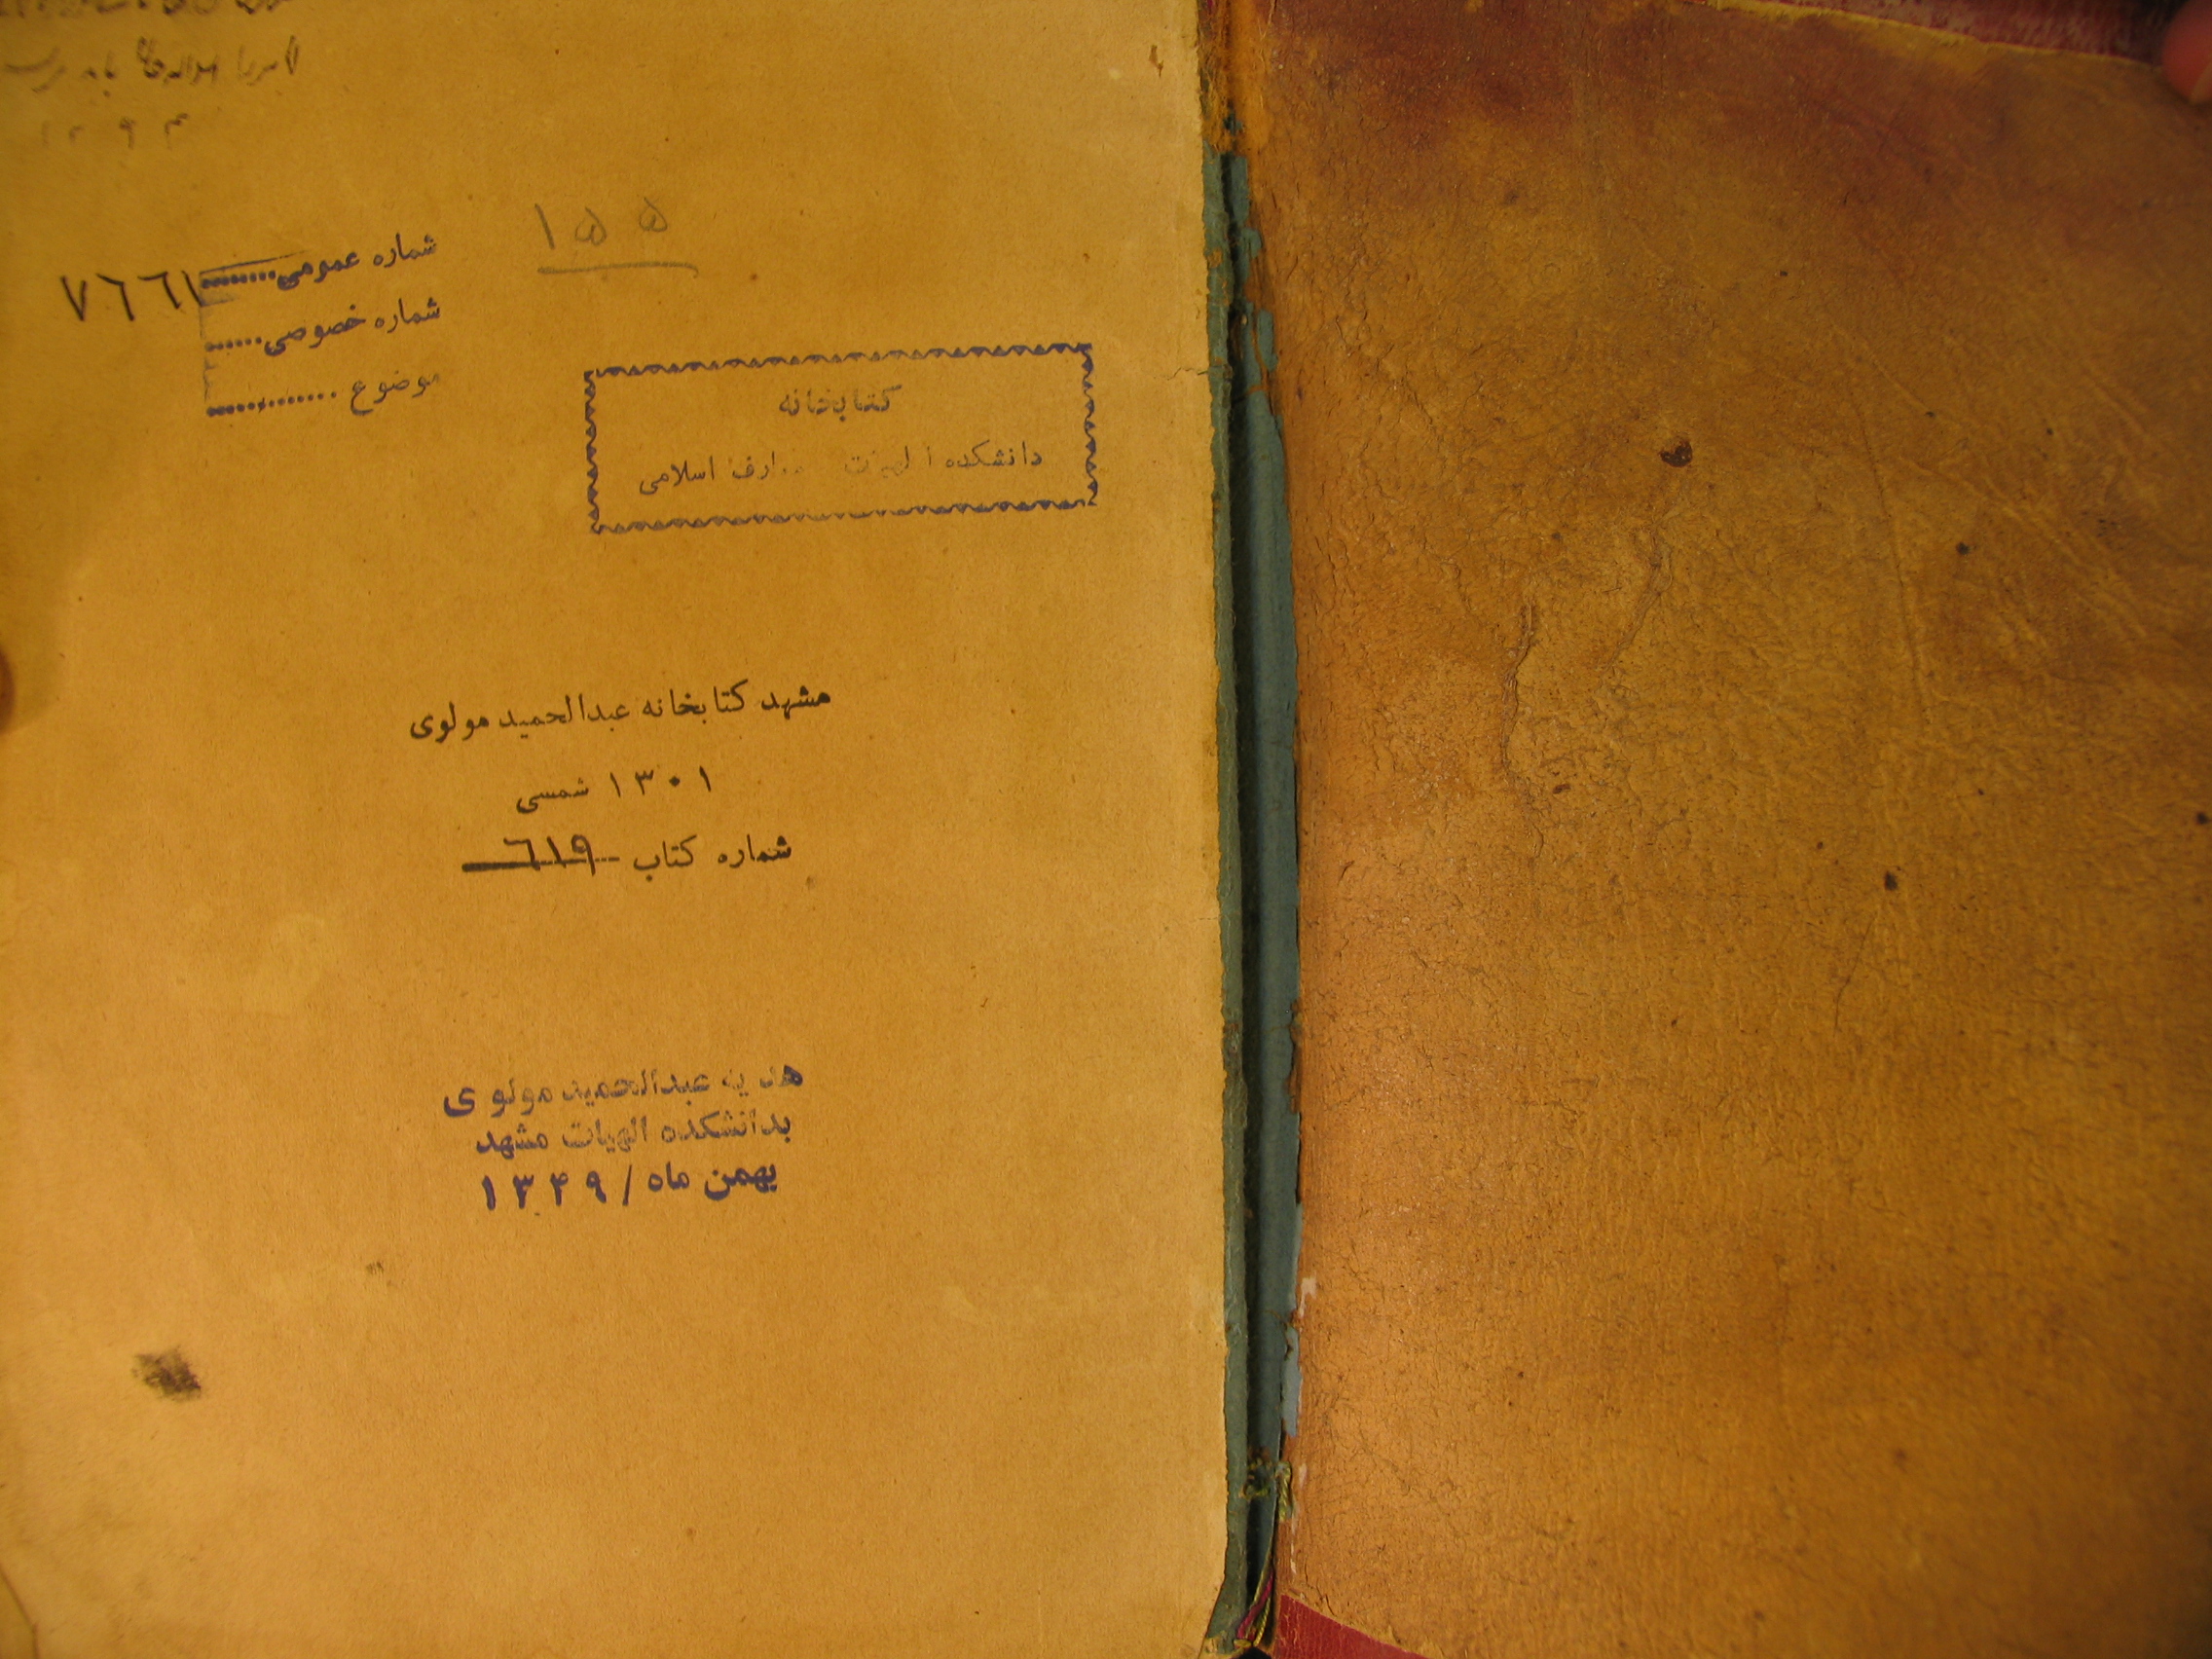 ۱۵۵
شماره عمومی ۷٦٦۱
شماره خصوصی
موضوع
کتابخانه
دانشکده الهیات معارف اسلامی
مشهد کتابخانه عبدالحمید مولوی
۱۳۰۱ شمسی
شماره کتاب ٦۱۹
هدیه عبدالحمید مولوی
بدانشکده الهیات مشهد
بهمن ماه / ۱۳۴۹